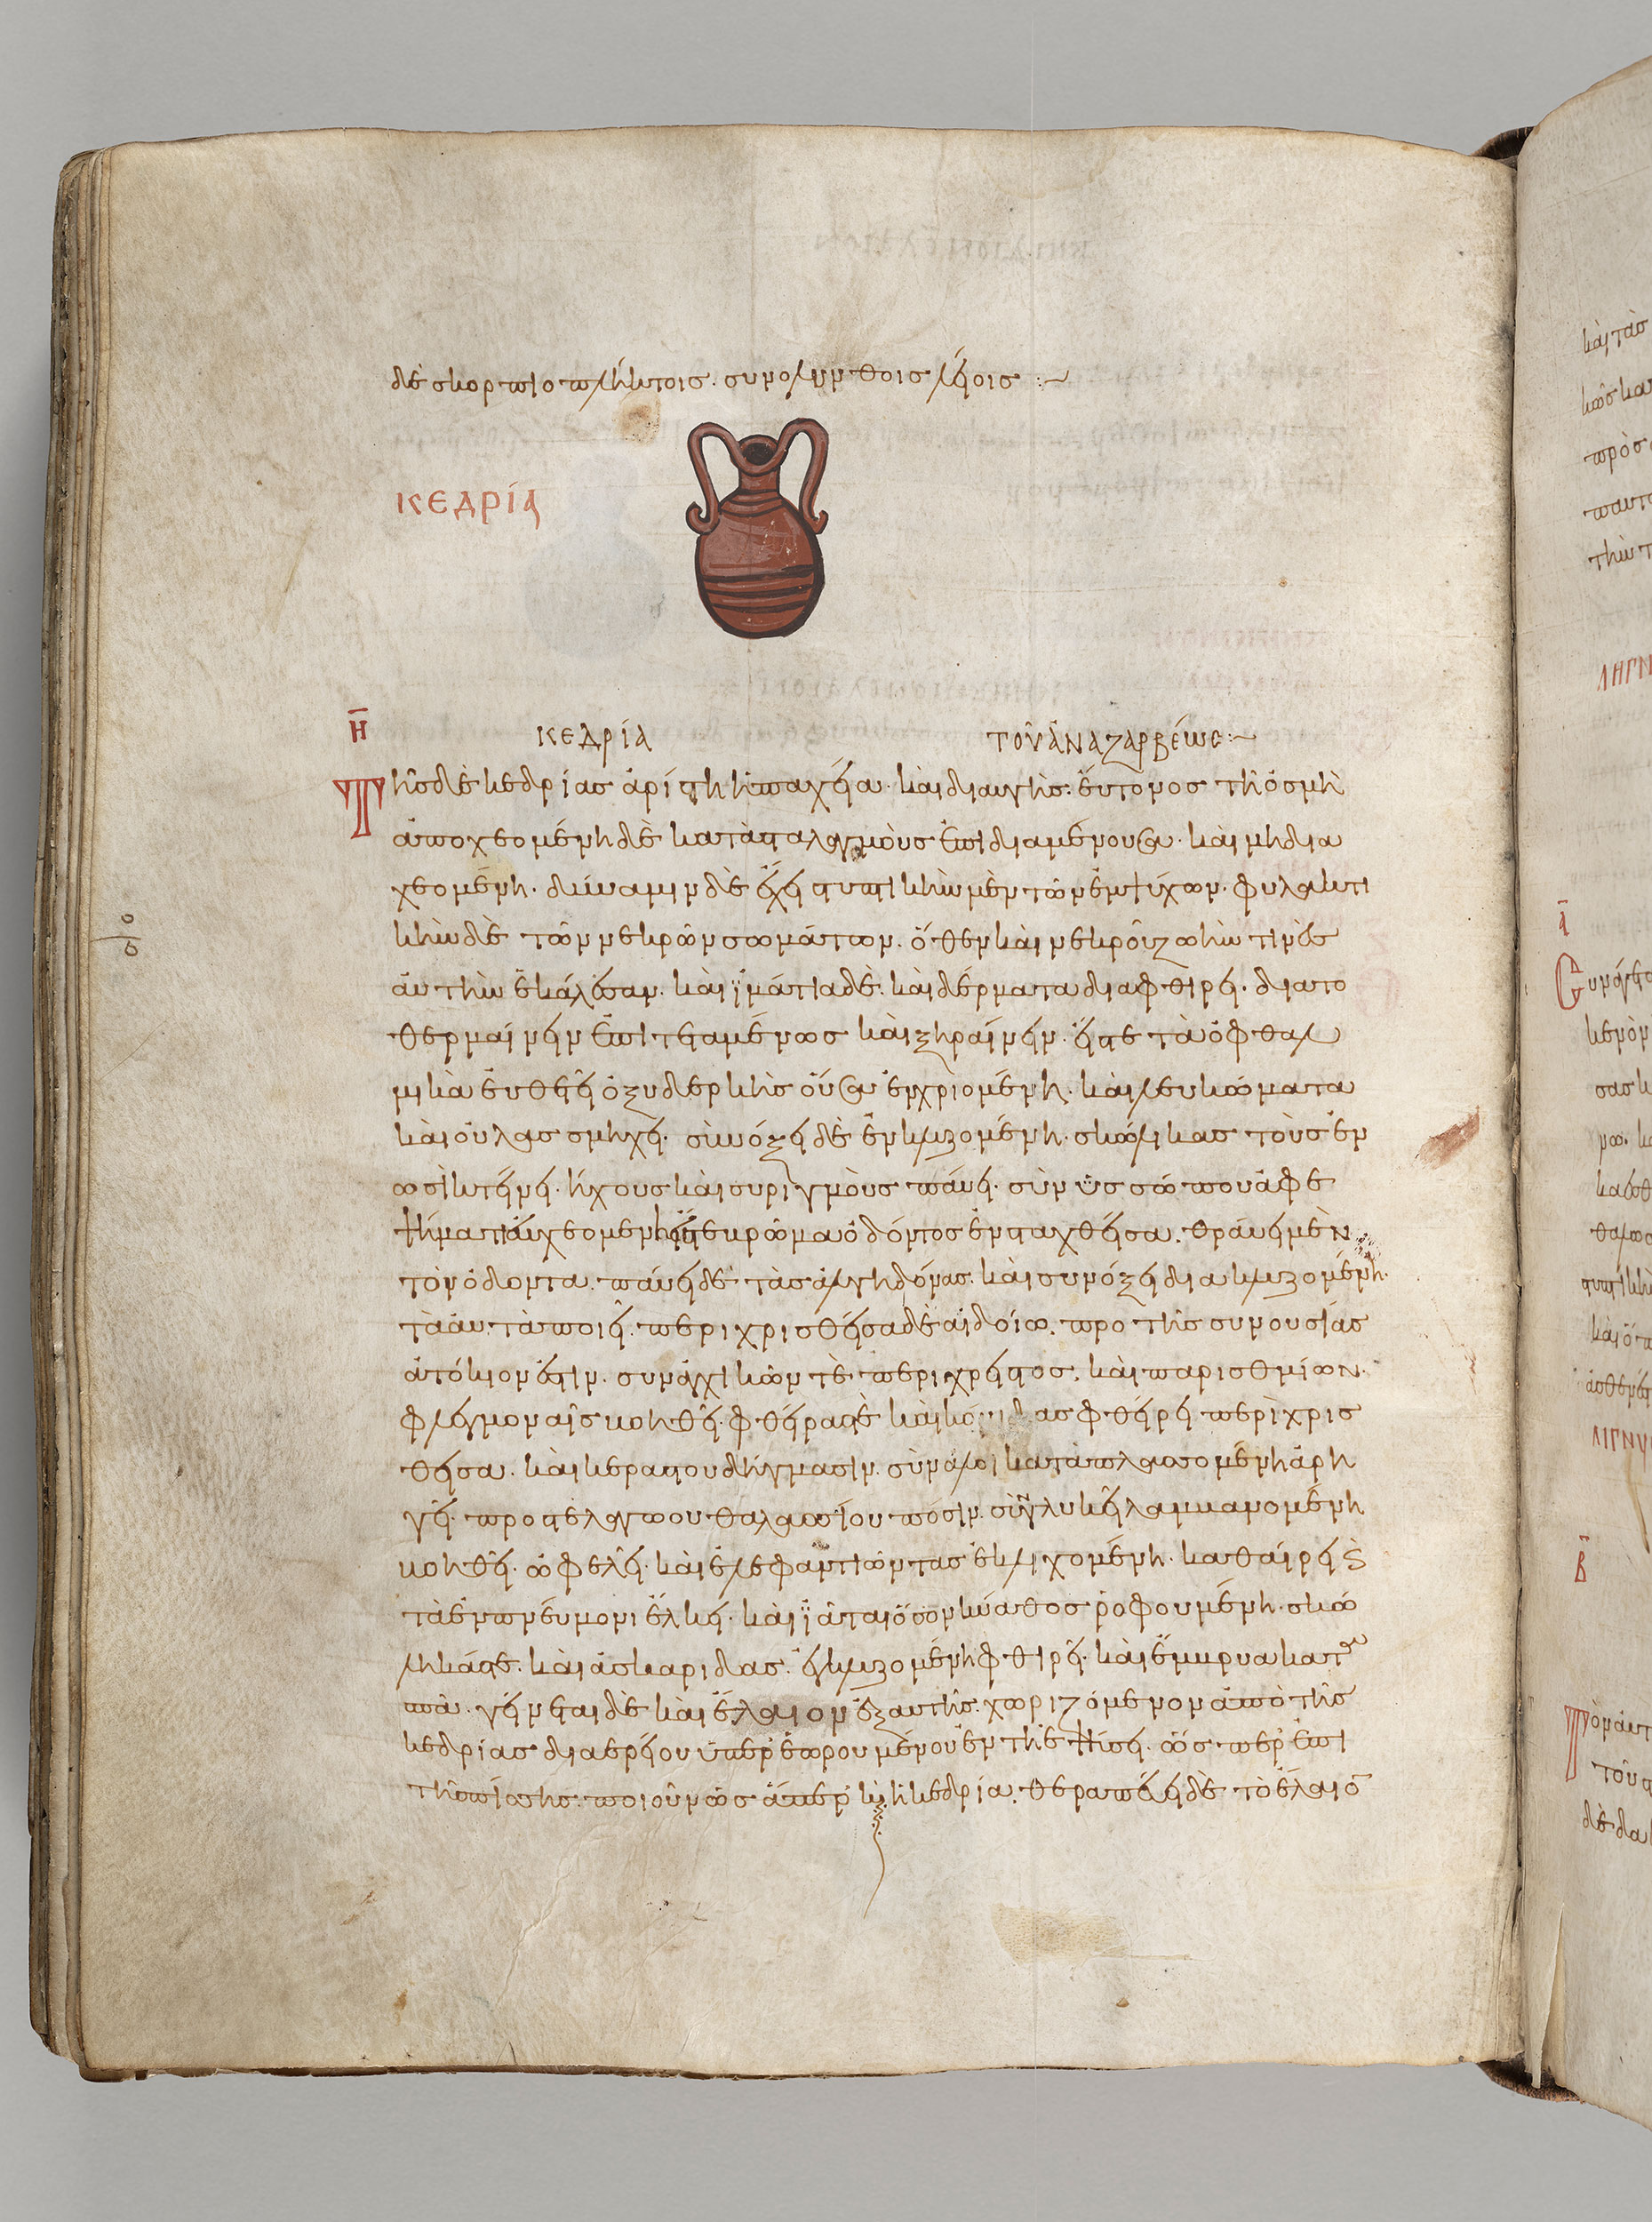 δὲ σκορπιοπλήκτοις. συνολύνθοις λείοις :~
ΚΕΔΡΊΑ
Η̄
ΚΕΔΡΊΑ ΤΟΥ ἈΝΑΖΑΡΒΈΩС :~
Τῆς δὲ κεδρίας ἀρίστη ἡ παχεῖα. καὶ διαυγὴς. εὔτονος τῇ ὀσμῇ
ἀποχεομένη δὲ κατὰ σταλαγμοὺς ἐπιδιαμένουσα. καὶ μὴ δια
χεομένη. δύναμιν δὲ ἔχει σηπτικὴν μὲν τῶν ἐμψύχων. φυλακτι
κὴν δὲ τῶν νεκρῶν σωμάτων. ὅθεν καὶ νεκροῦ ζωήν τινὲς
αὐτὴν ἐκάλεσαν. καὶ ϊμάτια δὲ. καὶ δέρματα διαφθίρει. διατο
θερμαίνειν ἐπιτεταμένως καὶ ξηραίνειν. εἴς τε τὰ ὀφθαλ
μικὰ εὐθετεῖ ὀξυδερκὴς οὖσα ἐγχριομένη. καὶ λευκώματα
καὶ οὐλὰς σμήχει. σὺν ὄξει δὲ ἐνκλυζομένη. σκώληκας τοὺς ἐν
ὠσὶ κτείνει. ἤχους καὶ συριγμοὺς παύει. σὺν ὑσσώπου ἀφε
ψήματι ἐγχεομένη εἴς τε βρῶμα ὀδόντος ἐνσταχθεῖσα. θραύει μὲν
τὸν ὀδόντα. παύει δὲ τὰς ἀλγηδόνας. καὶ συνόξει διακλυζομένη.
τὰ αὐτὰ ποιεῖ. περιχρισθεῖσα δὲ αἰδοίω. πρὸ τῆς συνουσίας
ἀτόκιον ἐστιν. συναγχικῶν τὲ περίχρειστος. καὶ παρισθμίων.
φλεγμοναῖς βοηθεῖ. φθεῖρας τὲ καὶ κόνιδας φθείρει περιχρισ
θεῖσα. καὶ κεράστου δήγμασιν. σὺν ἁλσὶ καταπλασσομένη ἀρή
γει. πρός τε λαγωοῦ θαλασσίου πόσιν. σὺν γλυκεῖ λαμβανομένη
βοηθεῖ. ὠφελεῖ. καὶ ἐλεφαντιῶντας ἐκλιχομένη. καθαίρει ϛ
τὰ ἐν πνεύμονι ἕλκη. καὶ ϊᾶται ὅσον κύαθος ῥοφουμένη. σκώ
ληκάς τε. καὶ ἀσκαρίδας. ἐγκλυζομένη φθίρει. καὶ ἔμβρυα κατ
πᾶ. γείνεται δὲ καὶ ἔλαιον ἐξ αὐτῆς. χωριζόμενον ἀπὸ τῆς
κεδρίας δια ἐρείου ὑπερεωρουμένου ἐν τῇ ἑψήσει. ὥσπερ ἐπὶ
τῆς πίσσης. ποιοῦν ὡς ἅπερ κ ἡ κεδρία. θεραπεύει δὲ τὸ ἔλαιο̄